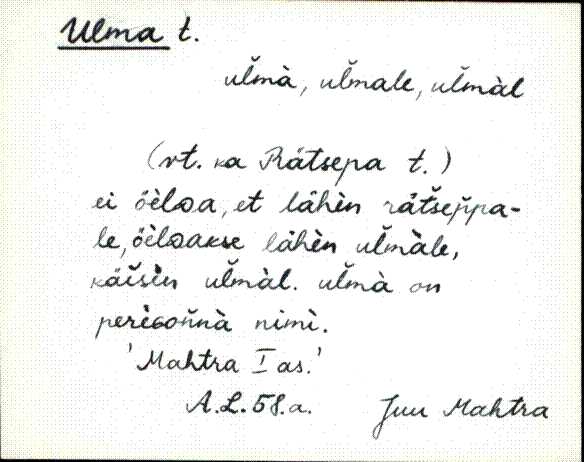 Ulma t.
ul̆mà, ul̆male, ul̆màl
(vt. ka Rätsepa t.)
ei öèlɒa, et lähèn rätšep̆pa-
le, öèlɒakse lähèn ul̆màle,
käĭsìn ul̆màl. ul̆mà on
perèɢon̆nà nimì.
'Mahtra I as.'
A.L. 58.a. Juu Mahtra